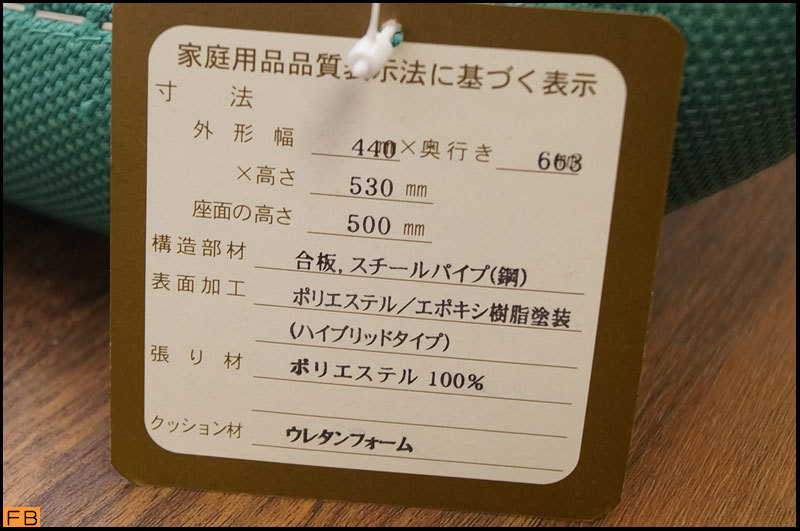 家庭用品品質表示法に基づく表示
寸 法
外形幅 440 ×奥行き 663
×高さ 530 mm
座面の高さ 500 mm
構造部材 合板,スチールパイプ(鋼)
表面加工 ポリエステル/エポキシ樹脂塗装
(ハイブリッドタイプ)
張り材 ポリエステル 100%
クッション材 ウレタンフォーム
FB